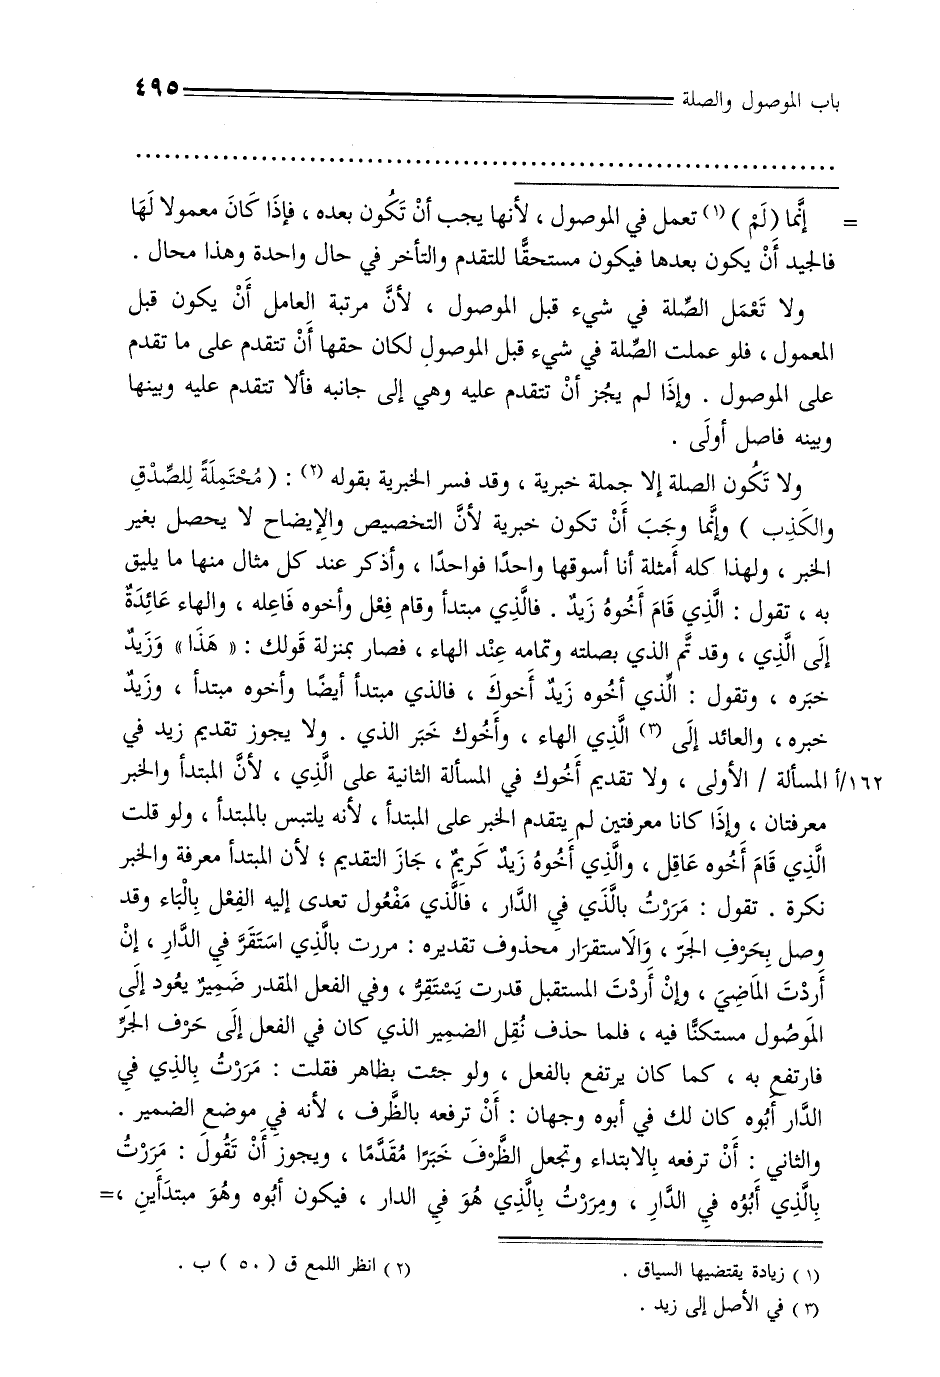 باب الموصول والصلة ٤٩٥
= إنَّما ( لَمْ ) (١) تعمل في الموصول ، لأنها يجب أنْ تَكُون بعده ، فإذَا كَانَ معمولا لَهَا
فالجيد أَنْ يكون بعدها فيكون مستحقًّا للتقدم والتأخر في حال واحدة وهذا محال .
ولا تَعْمَل الصِّلة في شيء قبل الموصول ، لأنَّ مرتبة العامل أَنْ يكون قبل
المعمول ، فلو عملت الصِّلة في شيء قبل الموصول لكان حقها أَنْ تتقدم على ما تقدم
على الموصول . وإذَا لم يجُز أنْ تتقدم عليه وهي إلى جانبه فألا تتقدم عليه وبينها
وبينه فاصل أولَى .
ولا تَكُون الصلة إلا جملة خبرية ، وقد فسر الخبرية بقوله (٢) : ( مُحْتَمِلَةً لِلصِّدْقِ
والكَذِب ) وإنَّما وجَبَ أَنْ تكون خبرية لأنَّ التخصيص والإيضاح لا يحصل بغير
الخبر ، ولهذا كله أَمثلة أنا أسوقها واحدًا فواحدًا ، وأذكر عند كل مثال منها ما يليق
به ، تقول : الَّذِي قَامَ أَخُوهُ زَيدٌ . فالَّذِي مبتدأ وقام فِعْل وأخوه فَاعِله ، والهاء عَائِدَةٌ
إلَى الَّذِي ، وقد تَّم الذي بصلته وتمامه عِنْد الهاء ، فصار بمنزلة قَولك : « هَذَا » وَزَيدٌ
خبَره ، وتقول : الَّذي أخُوه زَيدٌ أَخوكَ ، فالذي مبتدأ أيضًا وأخوه مبتدأ ، وزَيدٌ
خبره ، والعائد إلَى (٣) الَّذِي الهاء ، وأَخُوك خَبَر الذي . ولا يجوز تقديم زيد في
١٦٢/أ المسألة / الأولى ، ولا تقديم أَخُوك في المسألة الثانية على الَّذِي ، لأنَّ المبتدأ والخبر
معرفتان ، وإذَا كانا معرفتين لم يتقدم الخبر على المبتدأ ، لأنه يلتبس بالمبتدأ ، ولو قلت
الَّذِي قَامَ أَخُوه عَاقِل ، والَّذِي أَخُوهُ زَيدٌ كَرِيمٌ ، جَازَ التقديم ؛ لأن المبتدأ معرفة والخبر
نكرة . تقول : مَرَرْتُ بالَّذَي في الدَّار ، فَالَّذي مَفْعُول تعدى إليه الفِعْل بِالْبَاء وقد
وصل بِحَرْفِ الجَرّ ، وَالَاستقرَار محذوف تقديره : مررت بالَّذِي اسَتَقَرَّ فِي الدَّارِ ، إنْ
أَردْتَ المَاضِيَ ، وإنْ أَردْتَ المستقبل قدرت يَسْتَقِرُّ ، وفي الفعل المقدر ضَمِيرٌ يعُود إلَى
المَوصُول مستكنًّا فيه ، فلما حذف نُقِل الضمير الذي كان في الفعل إلَى حَرْف الجَرِّ
فارتفع به ، كما كان يرتفع بالفعل ، ولو جئت بظاهر فقلت : مَرَرْتُ بِالَّذِي فِي
الدَّار أَبُوه كان لك في أبوه وجهان : أَنْ ترفعه بالظَّرف ، لأنه في موضع الضمير .
والثاني : أَنْ ترفعه بِالابتداء وتجعل الظَّرْفَ خَبَرًا مُقَدَّمًا ، ويجوز أَنْ تَقُولَ : مَرَرْتُ
بِالَّذِي أَبُوُه فِي الدَّارِ ، ومِرَرْتُ بِالَّذِي هُوَ فِي الدار ، فيكون أبُوه وهُوَ مبتدَأَينِ ،=
(١) زيادة يقتضيها السياق . (٢) انظر اللمع ق ( ٥٠ ) ب .
(٣) في الأصل إلى زيد .